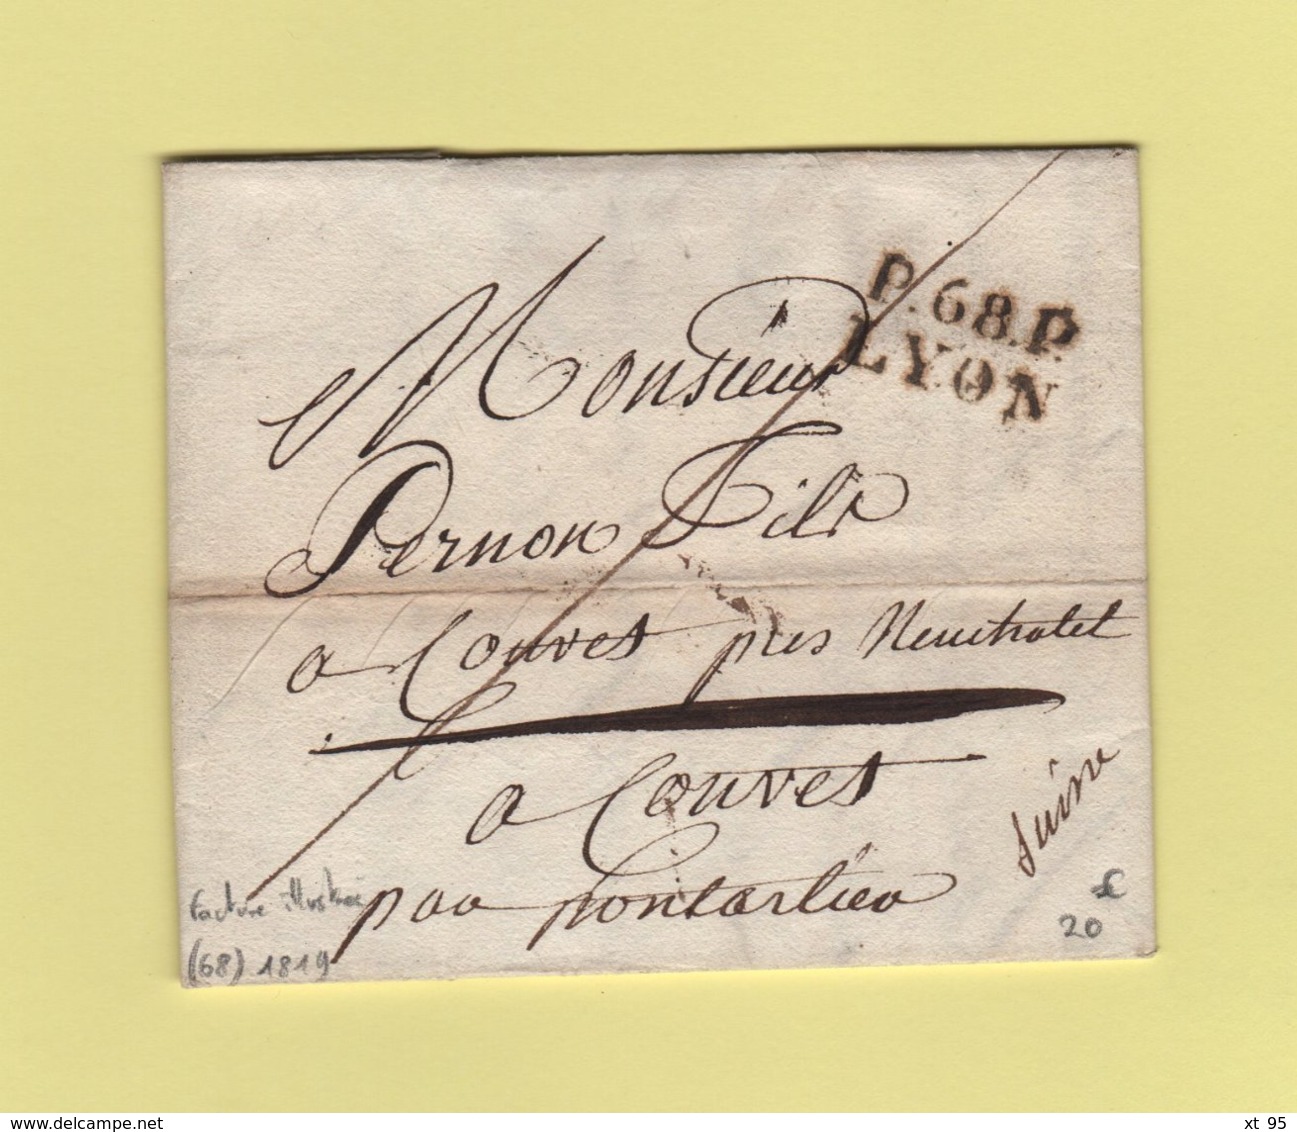 P.68.P.
LYON
Monsieur
Pernon Fils
a Couvet près Neuchatel
a Couvet
par pontarlier
Suisse
facture illustrée
(68) 1819
20
www.delcampe.net
xt 95